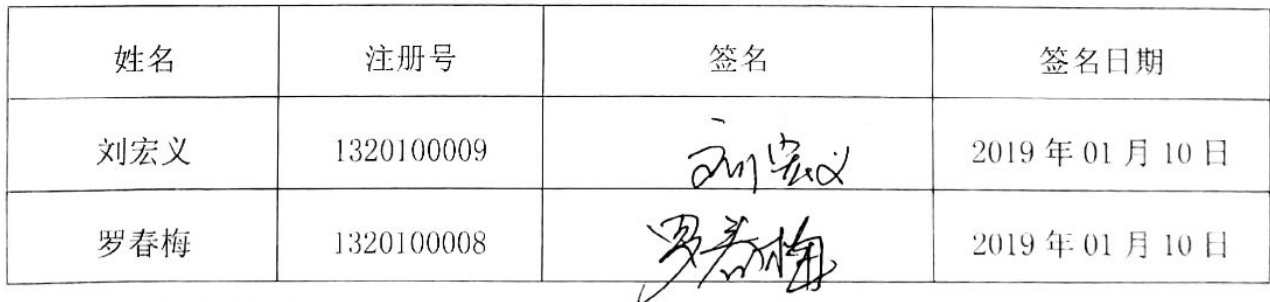 姓名 注册号 签名 签名日期
刘宏义 1320100009 刘宏义 2019年01月10日
罗春梅 1320100008 罗春梅 2019年01月10日